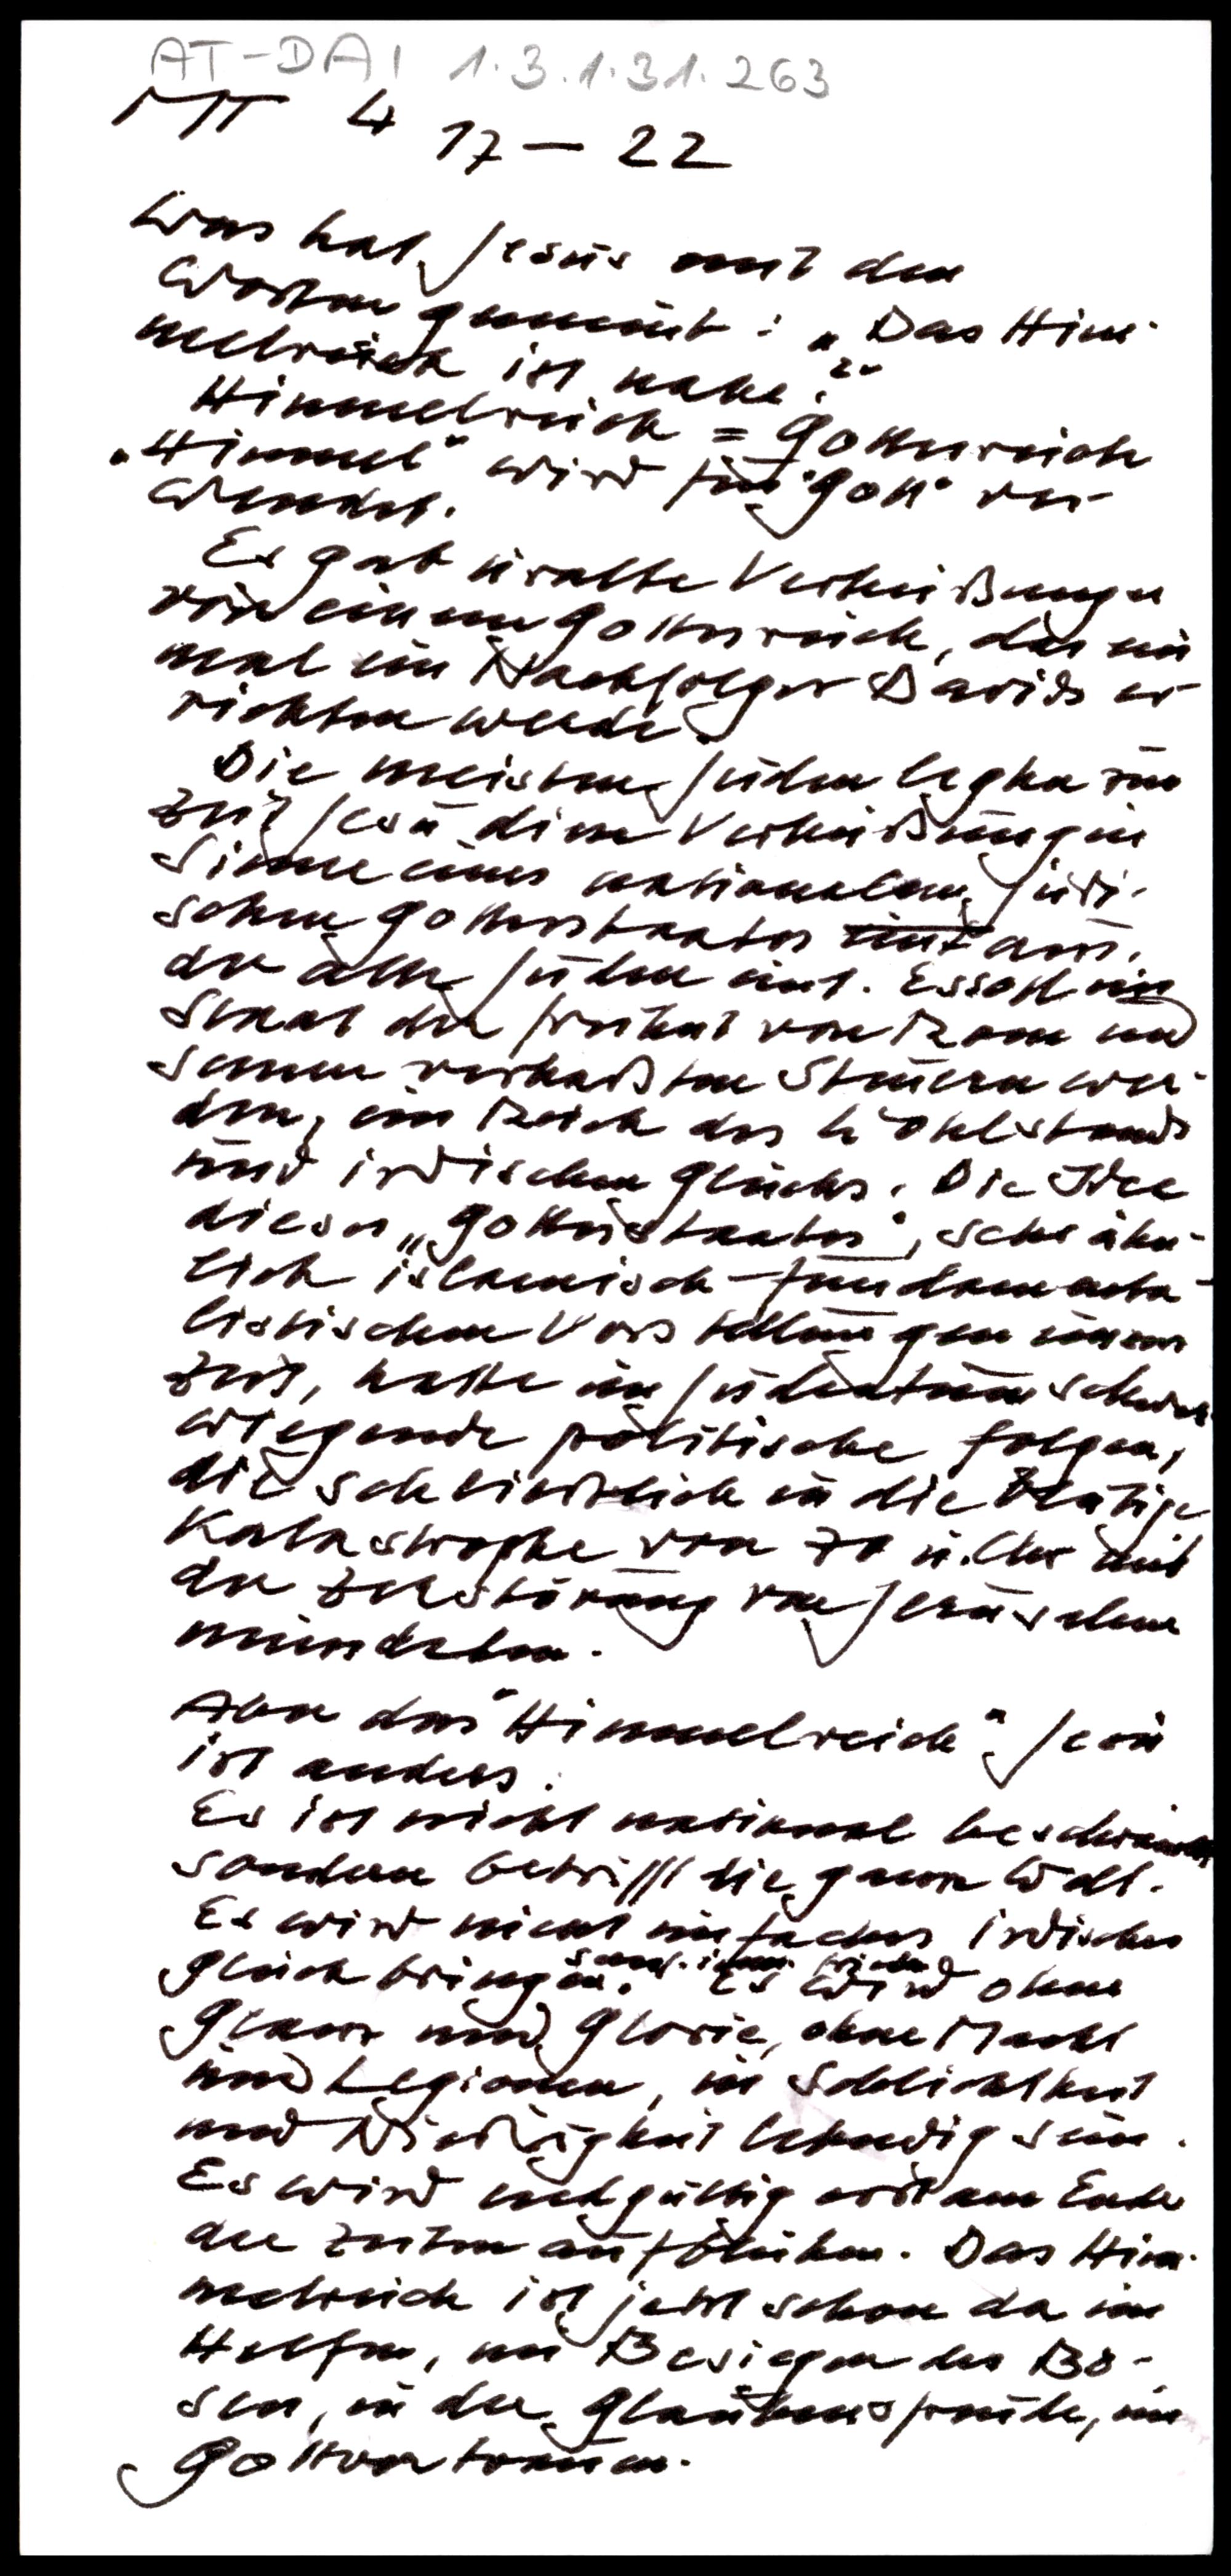 AT-DAI 1.3.1.31.263
MT 4 17 – 22
Was hat Jesus mit den
Worten gemeint: „Das Him-
melreich ist nahe?"
Himmelreich = Gottesreich
„Himmel" wird für "Gott" ver-
wendet.
Es gab uralte Verheißungen
von einem Gottesreich, das ein
mal ein Nachfolger Davids er
richten werde.
Die meisten Juden legten zur
Zeit Jesu diese Verheißung im
Sinne eines nationalen, jüdi-
schen Gottesstaates aus,
der alle Juden eint. Es soll ein
Staat der Freiheit von Rom und
seinen verhaßten Steuern wer-
den, ein Reich des Wohlstands
und irdischen Glücks. Die Idee
dieses „Gottesstaates", sehr ähn-
lich islamisch-fundamenta-
listischen Vorstellungen unserer
Zeit, hatte im Judentum schwer
wiegende politische Folgen,
die schließlich in die blutige
Katastrophe von 70 n. Chr mit
der Zerstörung von Jerusalem
mündeten.
Aber das "Himmelreich" Jesu
ist anders.
Es ist nicht national beschränkt
sondern betrifft die ganze Welt.
Es wird nicht einfaches irdisches
Glück bringen. Es wird ohne
Glanz und Glorie, ohne Macht
und Legionen, in Schlichtheit
und Niedrigkeit lebendig sein.
Es wird endgültig erst am Ende
der Zeiten aufblühen. Das Him-
melreich ist jetzt schon da im
Helfen, im Besiegen des Bö-
sen, in der Glaubensfreude, im
Gottvertrauen.